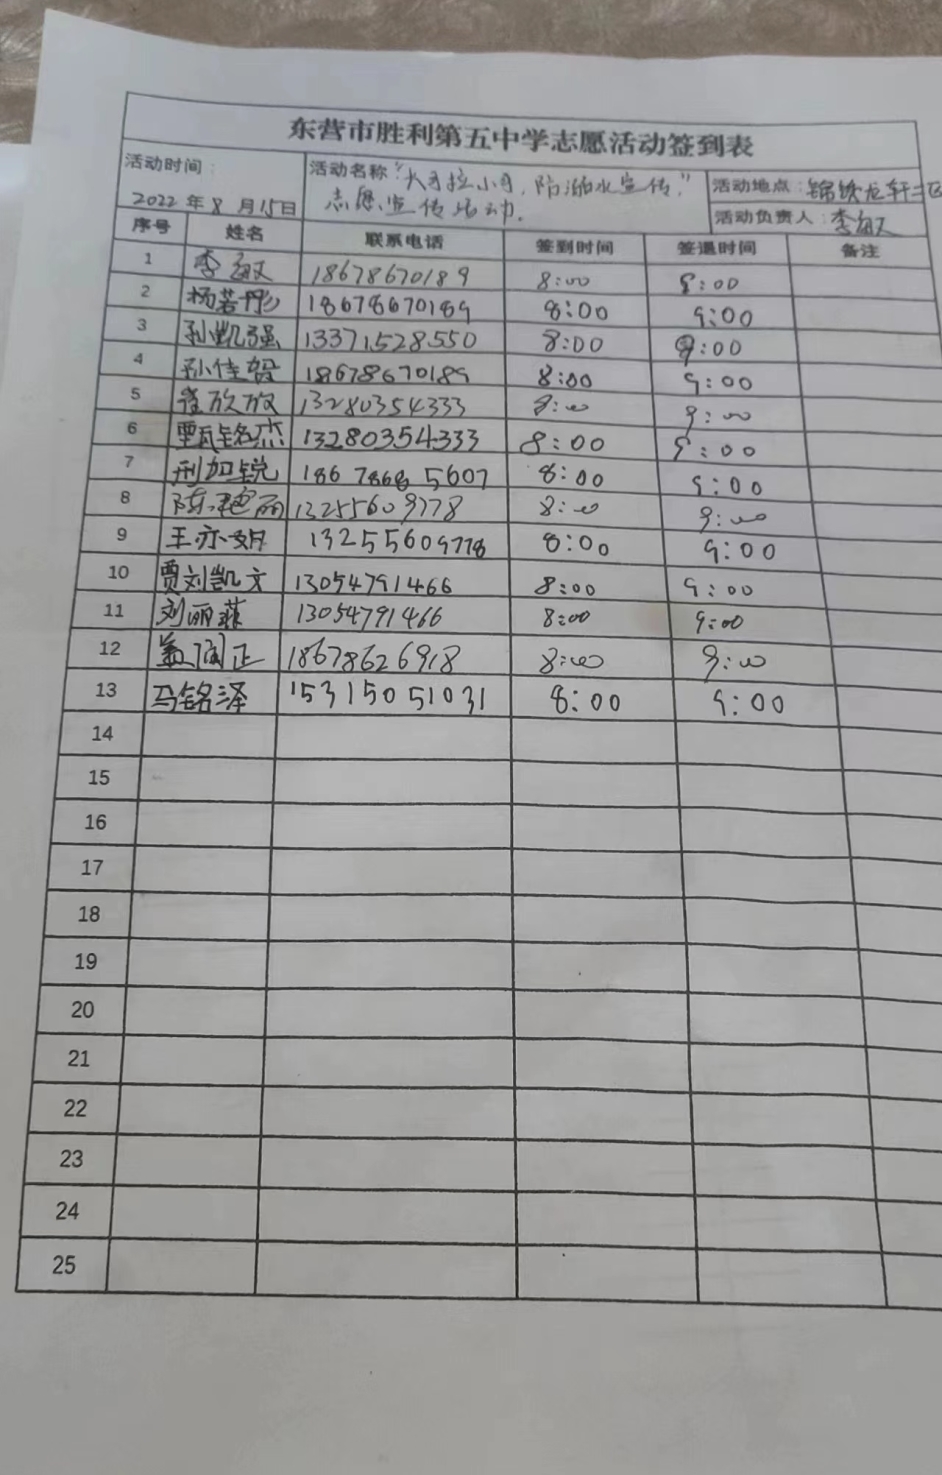 东营市胜利第五中学志愿活动签到表
活动时间：
2022 年 8 月 15 日
活动名称 "大手拉小手，防溺水宣传"
志愿宣传活动．
活动地点：锦绣龙轩北区
活动负责人：李敏
序号 姓名 联系电话 签到时间 签退时间 备注
1 李敏 18678670189 8:00 9:00
2 杨若彤 18678670189 8:00 9:00
3 孙凯强 13371528550 8:00 9:00
4 孙佳贺 18678670189 8:00 9:00
5 崔欣欣 13280354333 8:00 9:00
6 甄铭杰 13280354333 8:00 9:00
7 邢加锐 18678685607 8:00 9:00
8 陈艳丽 13255609778 8:00 9:00
9 王亦妍 13255609778 8:00 9:00
10 贾刘凯文 13054791466 8:00 9:00
11 刘丽菲 13054791466 8:00 9:00
12 18678626918 8:00 9:00
13 马铭泽 15315051031 8:00 9:00
14
15
16
17
18
19
20
21
22
23
24
25